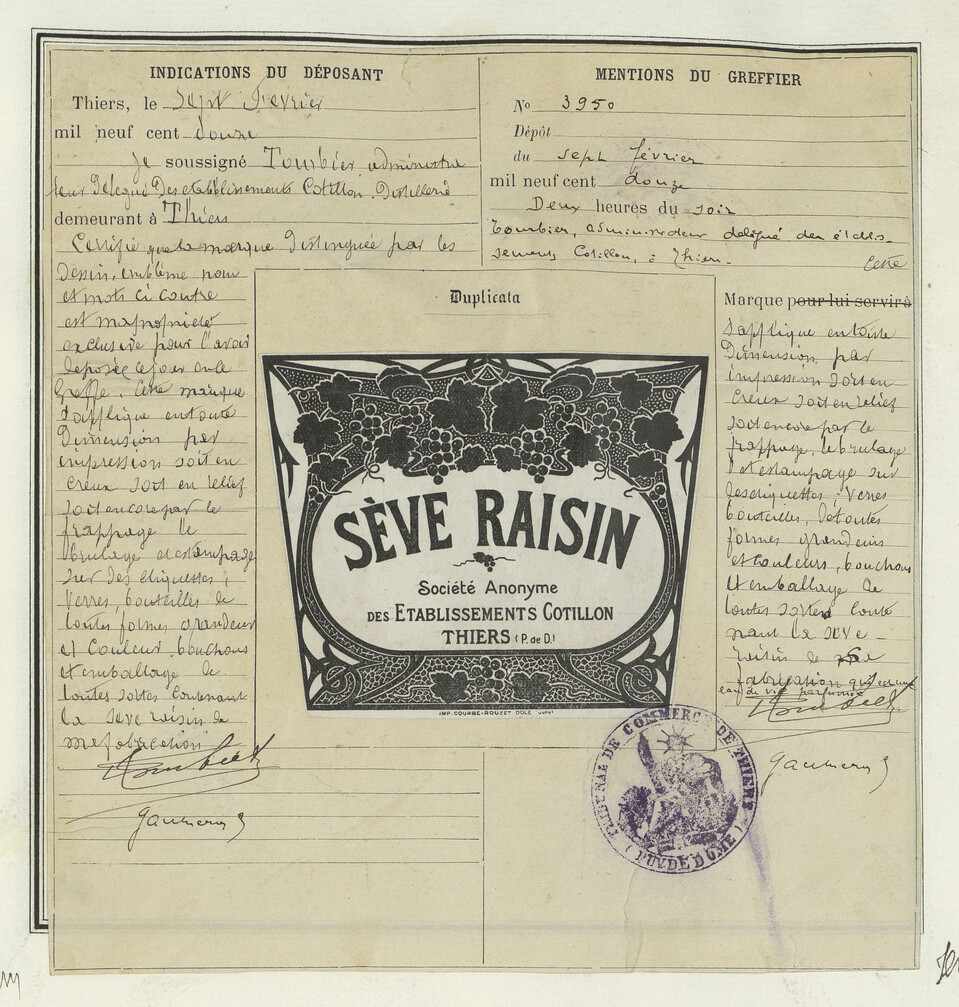 INDICATIONS DU DÉPOSANT
Thiers, le sept Février
mil neuf cent douze
je soussigné Tourbier administra
teur Délégué Des etablissements Cotillon. Distillerie
demeurant à Thiers
Certifie que la marque Distinguée par les
Dessin, emblème nom
et mots ci contre
est ma propriété
exclusive pour l'avoir
Deposée ce jour au le
Greffe. Cette marque
s'applique en toute
Dimension par
impression soit en
creux soit en relief
soit encore par le
frappage le
brulage et estampage
sur des etiquettes,
verres, bouteilles de
toutes formes grandeurs
et couleur, bouchons
et emballage de
toutes sortes contenant
la sève raisin de
ma fabrication
MENTIONS DU GREFFIER
No 3950
Dépôt
du sept février
mil neuf cent douze
Deux heures du soir
Tourbier, administrateur délégué des établis-
sements Cotillon, à Thiers.
Cette
Marque pour lui servir à
s'applique en toute
Dimension par
impression soit en
creux soit en relief
soit encore par le
frappage, le brulage
et estampage sur
des etiquettes, verres
bouteilles, de toutes
formes grandeurs
et couleurs, bouchons
et emballage de
toutes sortes conte
nant la sève
raisin de sa
fabrication qui est une
eau de vie parfumée
Duplicata
SÈVE RAISIN
Société Anonyme
DES ETABLISSEMENTS COTILLON
THIERS (P. de D.)
IMP. COURBE-ROUZET DOLE (Jura)
TRIBUNAL DE COMMERCE DE THIERS
(PUY DE DOME)